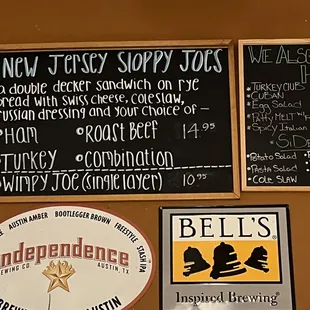 New Jersey Sloppy Joes
a double decker sandwich on rye
bread with swiss cheese, coleslaw,
russian dressing and your choice of -
• Ham • Roast Beef 14.95
• Turkey • combination
• Wimpy Joe (single layer) 10.95
We Als
• Turkey Club
• Cuban
• Egg Salad
• Patty Melt w/
• Spicy Italian
Side
• Potato Salad
• Pasta Salad
• Cole Slaw
AUSTIN AMBER BOOTLEGGER BROWN FREESTYLE STASH IPA
independence
BREWING CO. AUSTIN, TX
AUSTIN
BELL'S
Inspired Brewing®